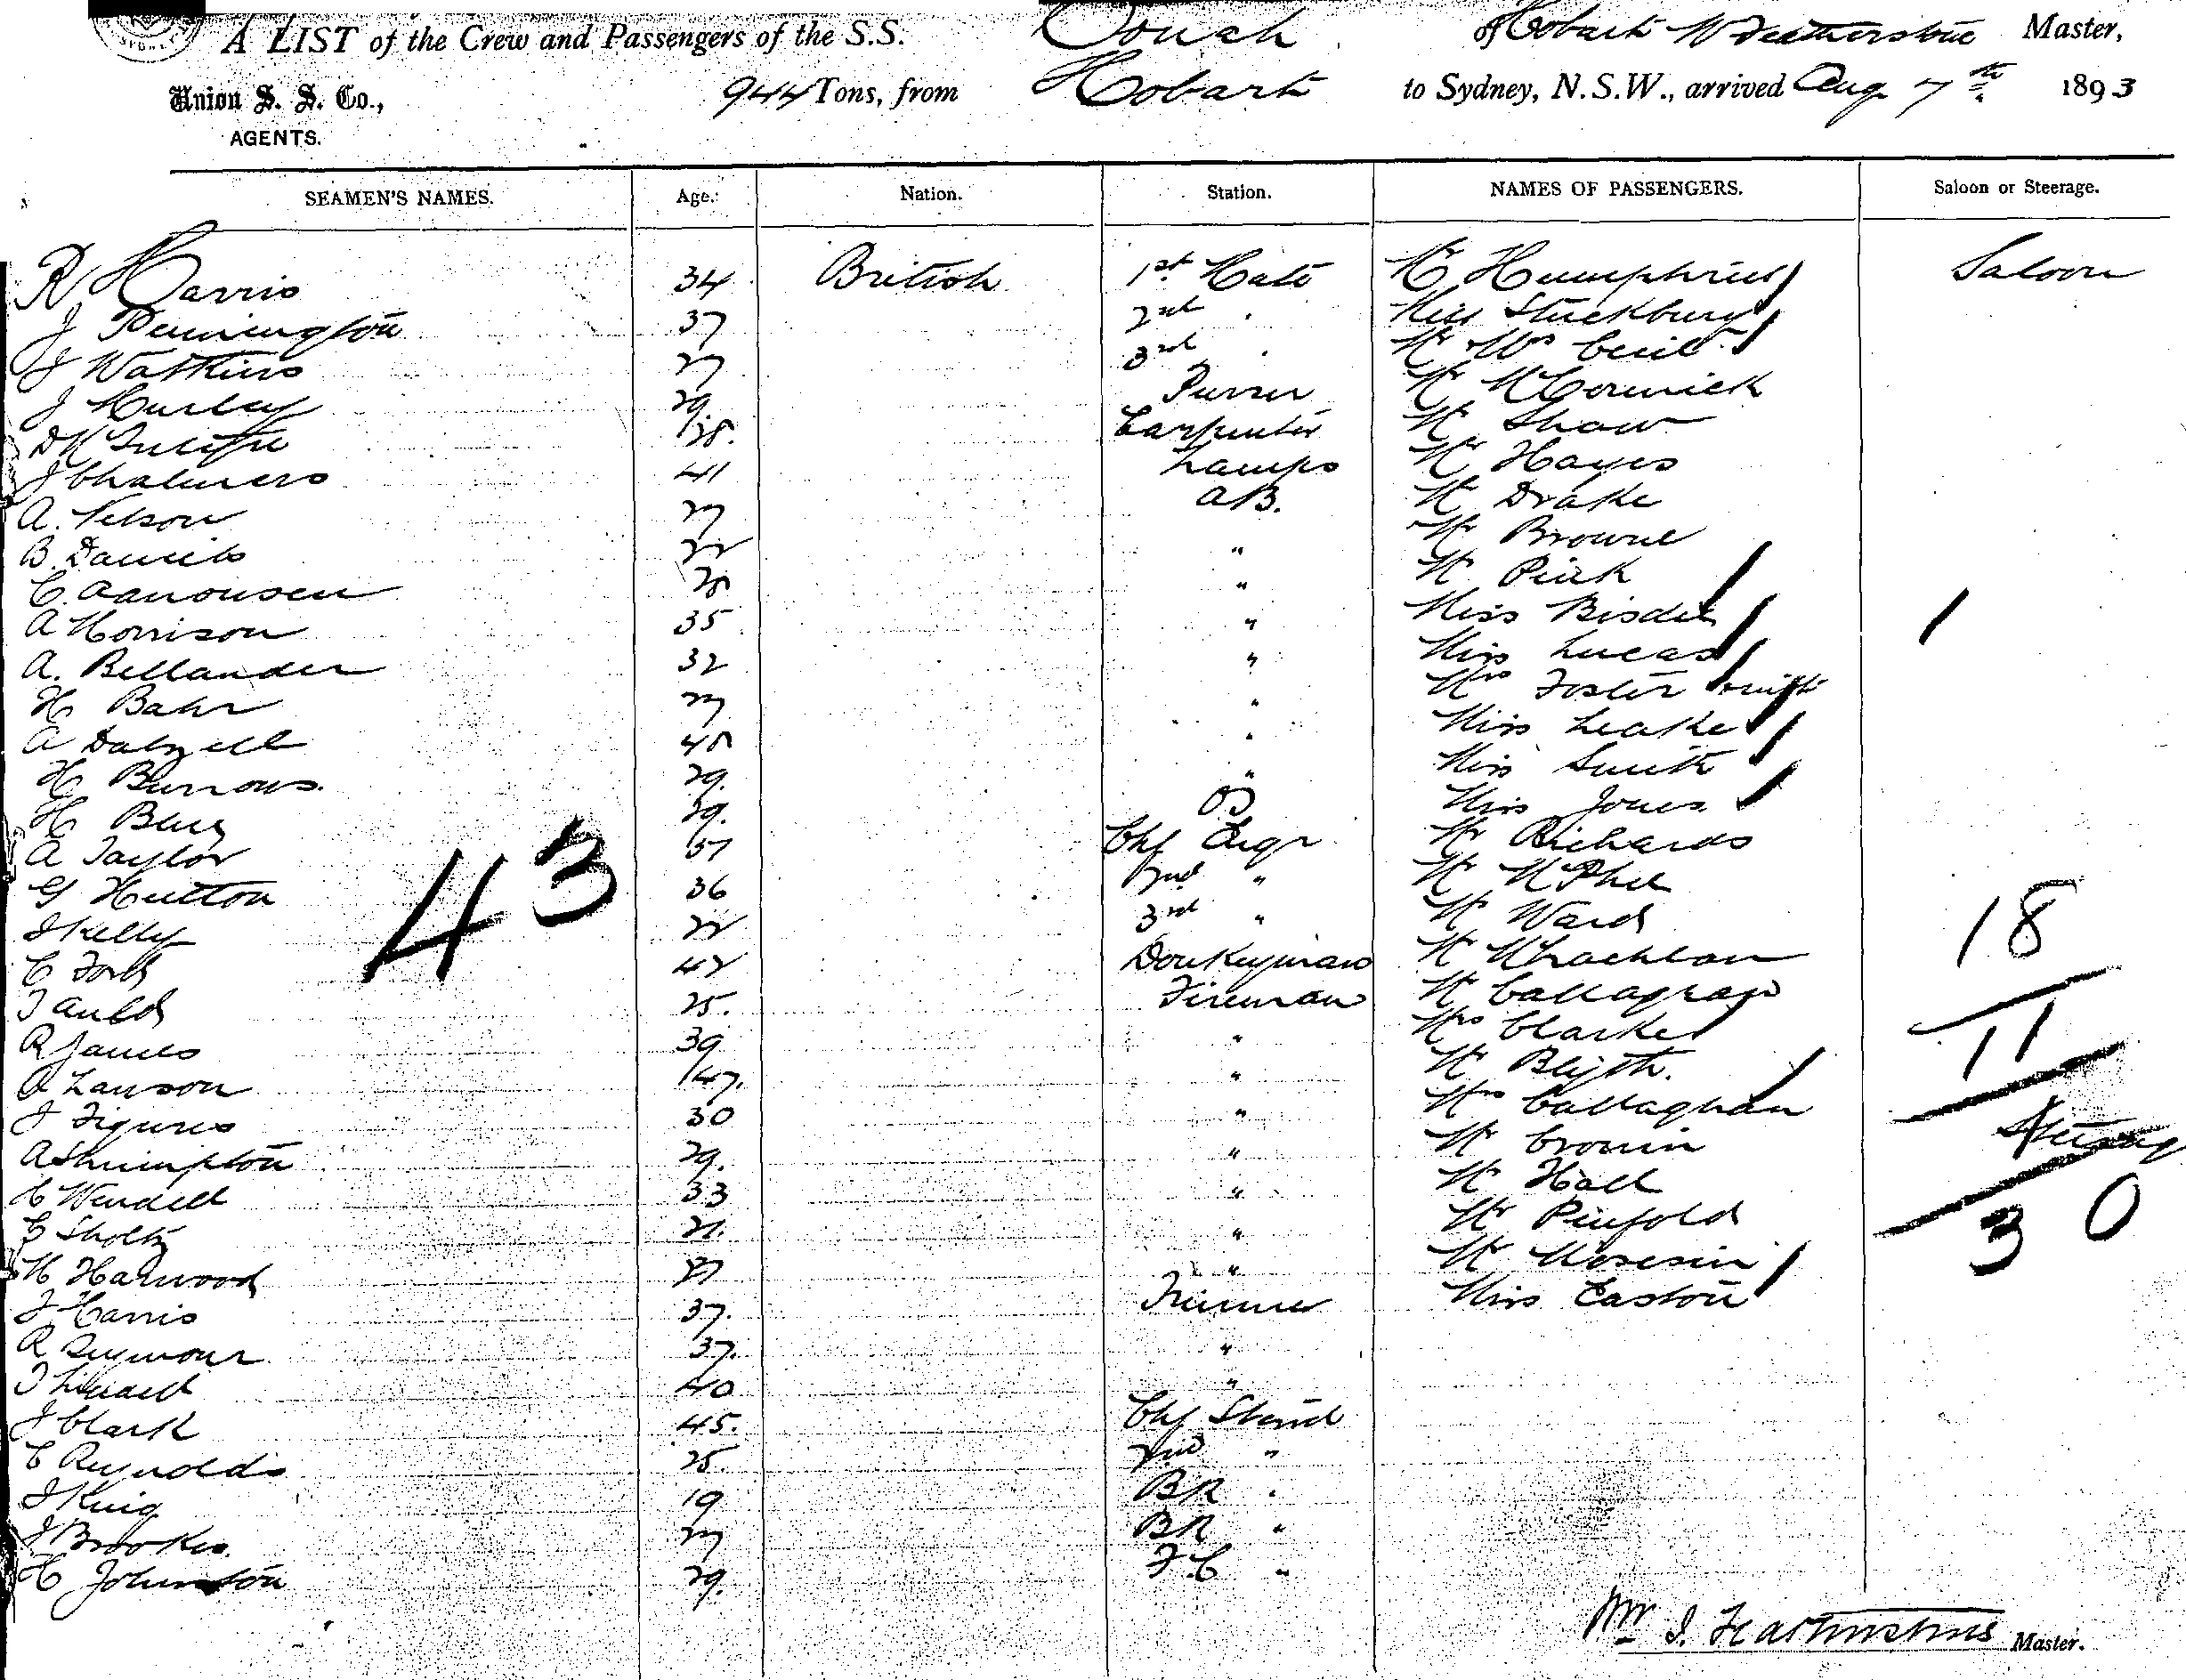 SYDNEY
A LIST of the Crew and Passengers of the S.S. of Hobart W Featherstone Master,
Union S. S. Co., 944 Tons, from Hobart to Sydney, N.S.W., arrived Aug 7th 1893
AGENTS.
SEAMEN'S NAMES. Age. Nation. Station. NAMES OF PASSENGERS. Saloon or Steerage.
R Harris 34 British 1st Mate Mr Humphries Saloon
J Pennington 37 2nd " Miss Stuckbury
J Watkins 27 3rd " Mr Mrs Cecil
J Hurley 29 Purser Mr McCormick
28. Carpenter Mr Shaw
J Chalmers 41 Lamps Mr Hayes
A. Nelson 27 AB. Mr Drake
B. Daniels 22 " Mr Browne
C. Aanonsen 28 " Mr Pink
A Morrison 35 " Miss Bisdee
A. Bellander 32 " Miss Lucas
H Bahr 27 " Mrs Foster
A Dalzell 48 " Miss Leake
H Burrows. 29. " Miss Smith
H 29. OS Miss Jones
A Taylor 37 Chf Engr Mr Richards
G Hutton 36 2nd " Mr McPhee
J Kelly 22 3rd " Mr Ward
C Ford 42 Donkeyman Mr McLachlan
T Auld 25. Fireman Mr Callaghan
R James 39 " Mrs Clarke
A Lawson 47. " Mr Blyth.
J Figures 30 " Mrs Callaghan
A Shrimpton 29. " Mr Cronin
C Wendell 33 " Mr Hall
C Sholtz 21. " Mr Penfold
H Harwood 27 " Mr
J Harris 37. Trimmer Miss Easton
R Seymour 37. "
T 40 "
J Clark 45. Chf Stewd
C Reynolds 25. 2nd "
J King 19 BR "
J Brookes. 27 BR "
H Johnston 29. F.C "
43
1
18
11
Steerage
30
Wm J. Featherstone Master.